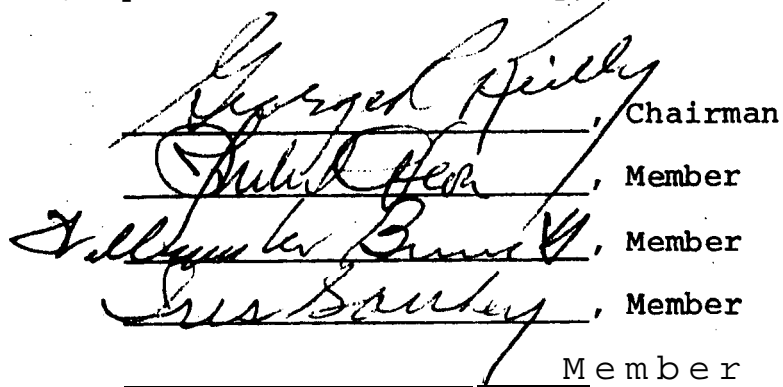 George R Reilly, Chairman
, Member
William W Bennett, Member
Iris Sankey, Member
Member